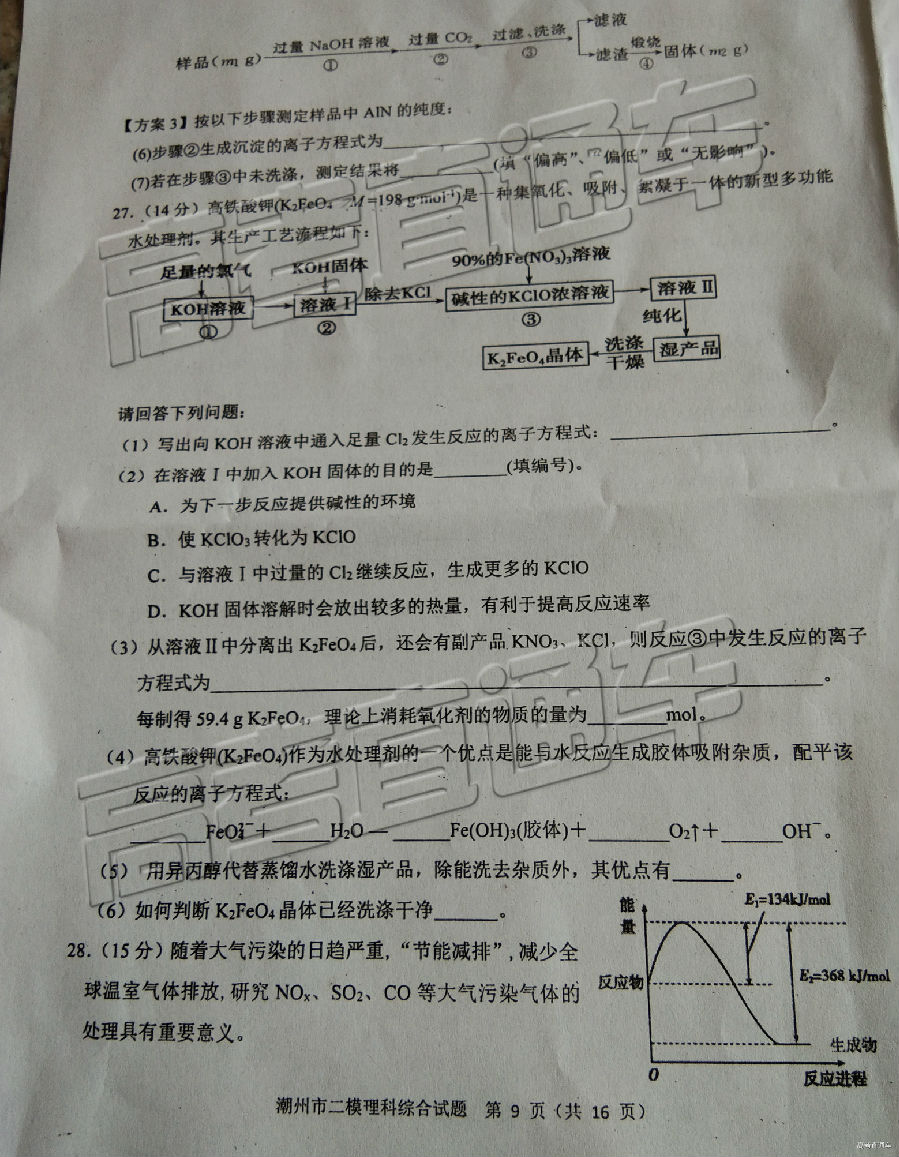 样品(m₁ g) 过量 NaOH 溶液 ① 过量 CO₂ ② 过滤、洗涤 ③ 滤液
滤渣 煅烧 ④ 固体(m₂ g)
【方案 3】按以下步骤测定样品中 AlN 的纯度：
(6)步骤②生成沉淀的离子方程式为________。
(7)若在步骤③中未洗涤，测定结果将________(填“偏高”、“偏低”或“无影响”)。
27.（14 分）高铁酸钾(K₂FeO₄ M=198 g·mol⁻¹)是一种集氧化、吸附、絮凝于一体的新型多功能
水处理剂。其生产工艺流程如下：
足量的氯气 KOH固体 90%的Fe(NO₃)₃溶液
KOH溶液 溶液Ⅰ 除去KCl 碱性的KClO浓溶液 溶液Ⅱ
① ② ③ 纯化
K₂FeO₄晶体 洗涤 干燥 湿产品
请回答下列问题：
（1）写出向 KOH 溶液中通入足量 Cl₂ 发生反应的离子方程式：________。
（2）在溶液Ⅰ中加入 KOH 固体的目的是________(填编号)。
A．为下一步反应提供碱性的环境
B．使 KClO₃ 转化为 KClO
C．与溶液Ⅰ中过量的 Cl₂ 继续反应，生成更多的 KClO
D．KOH 固体溶解时会放出较多的热量，有利于提高反应速率
（3）从溶液Ⅱ中分离出 K₂FeO₄ 后，还会有副产品 KNO₃、KCl，则反应③中发生反应的离子
方程式为________。
每制得 59.4 g K₂FeO₄，理论上消耗氧化剂的物质的量为________mol。
（4）高铁酸钾(K₂FeO₄)作为水处理剂的一个优点是能与水反应生成胶体吸附杂质，配平该
反应的离子方程式：
______FeO₄²⁻＋______H₂O — ______Fe(OH)₃(胶体)＋______O₂↑＋______OH⁻。
（5） 用异丙醇代替蒸馏水洗涤湿产品，除能洗去杂质外，其优点有______。
（6）如何判断 K₂FeO₄ 晶体已经洗涤干净______。
28.（15 分）随着大气污染的日趋严重，“节能减排”，减少全
球温室气体排放，研究 NOₓ、SO₂、CO 等大气污染气体的
处理具有重要意义。
能量
E₁=134kJ/mol
反应物
E₂=368 kJ/mol
生成物
0
反应进程
潮州市二模理科综合试题 第 9 页（共 16 页）
高考直通车
高考直通车